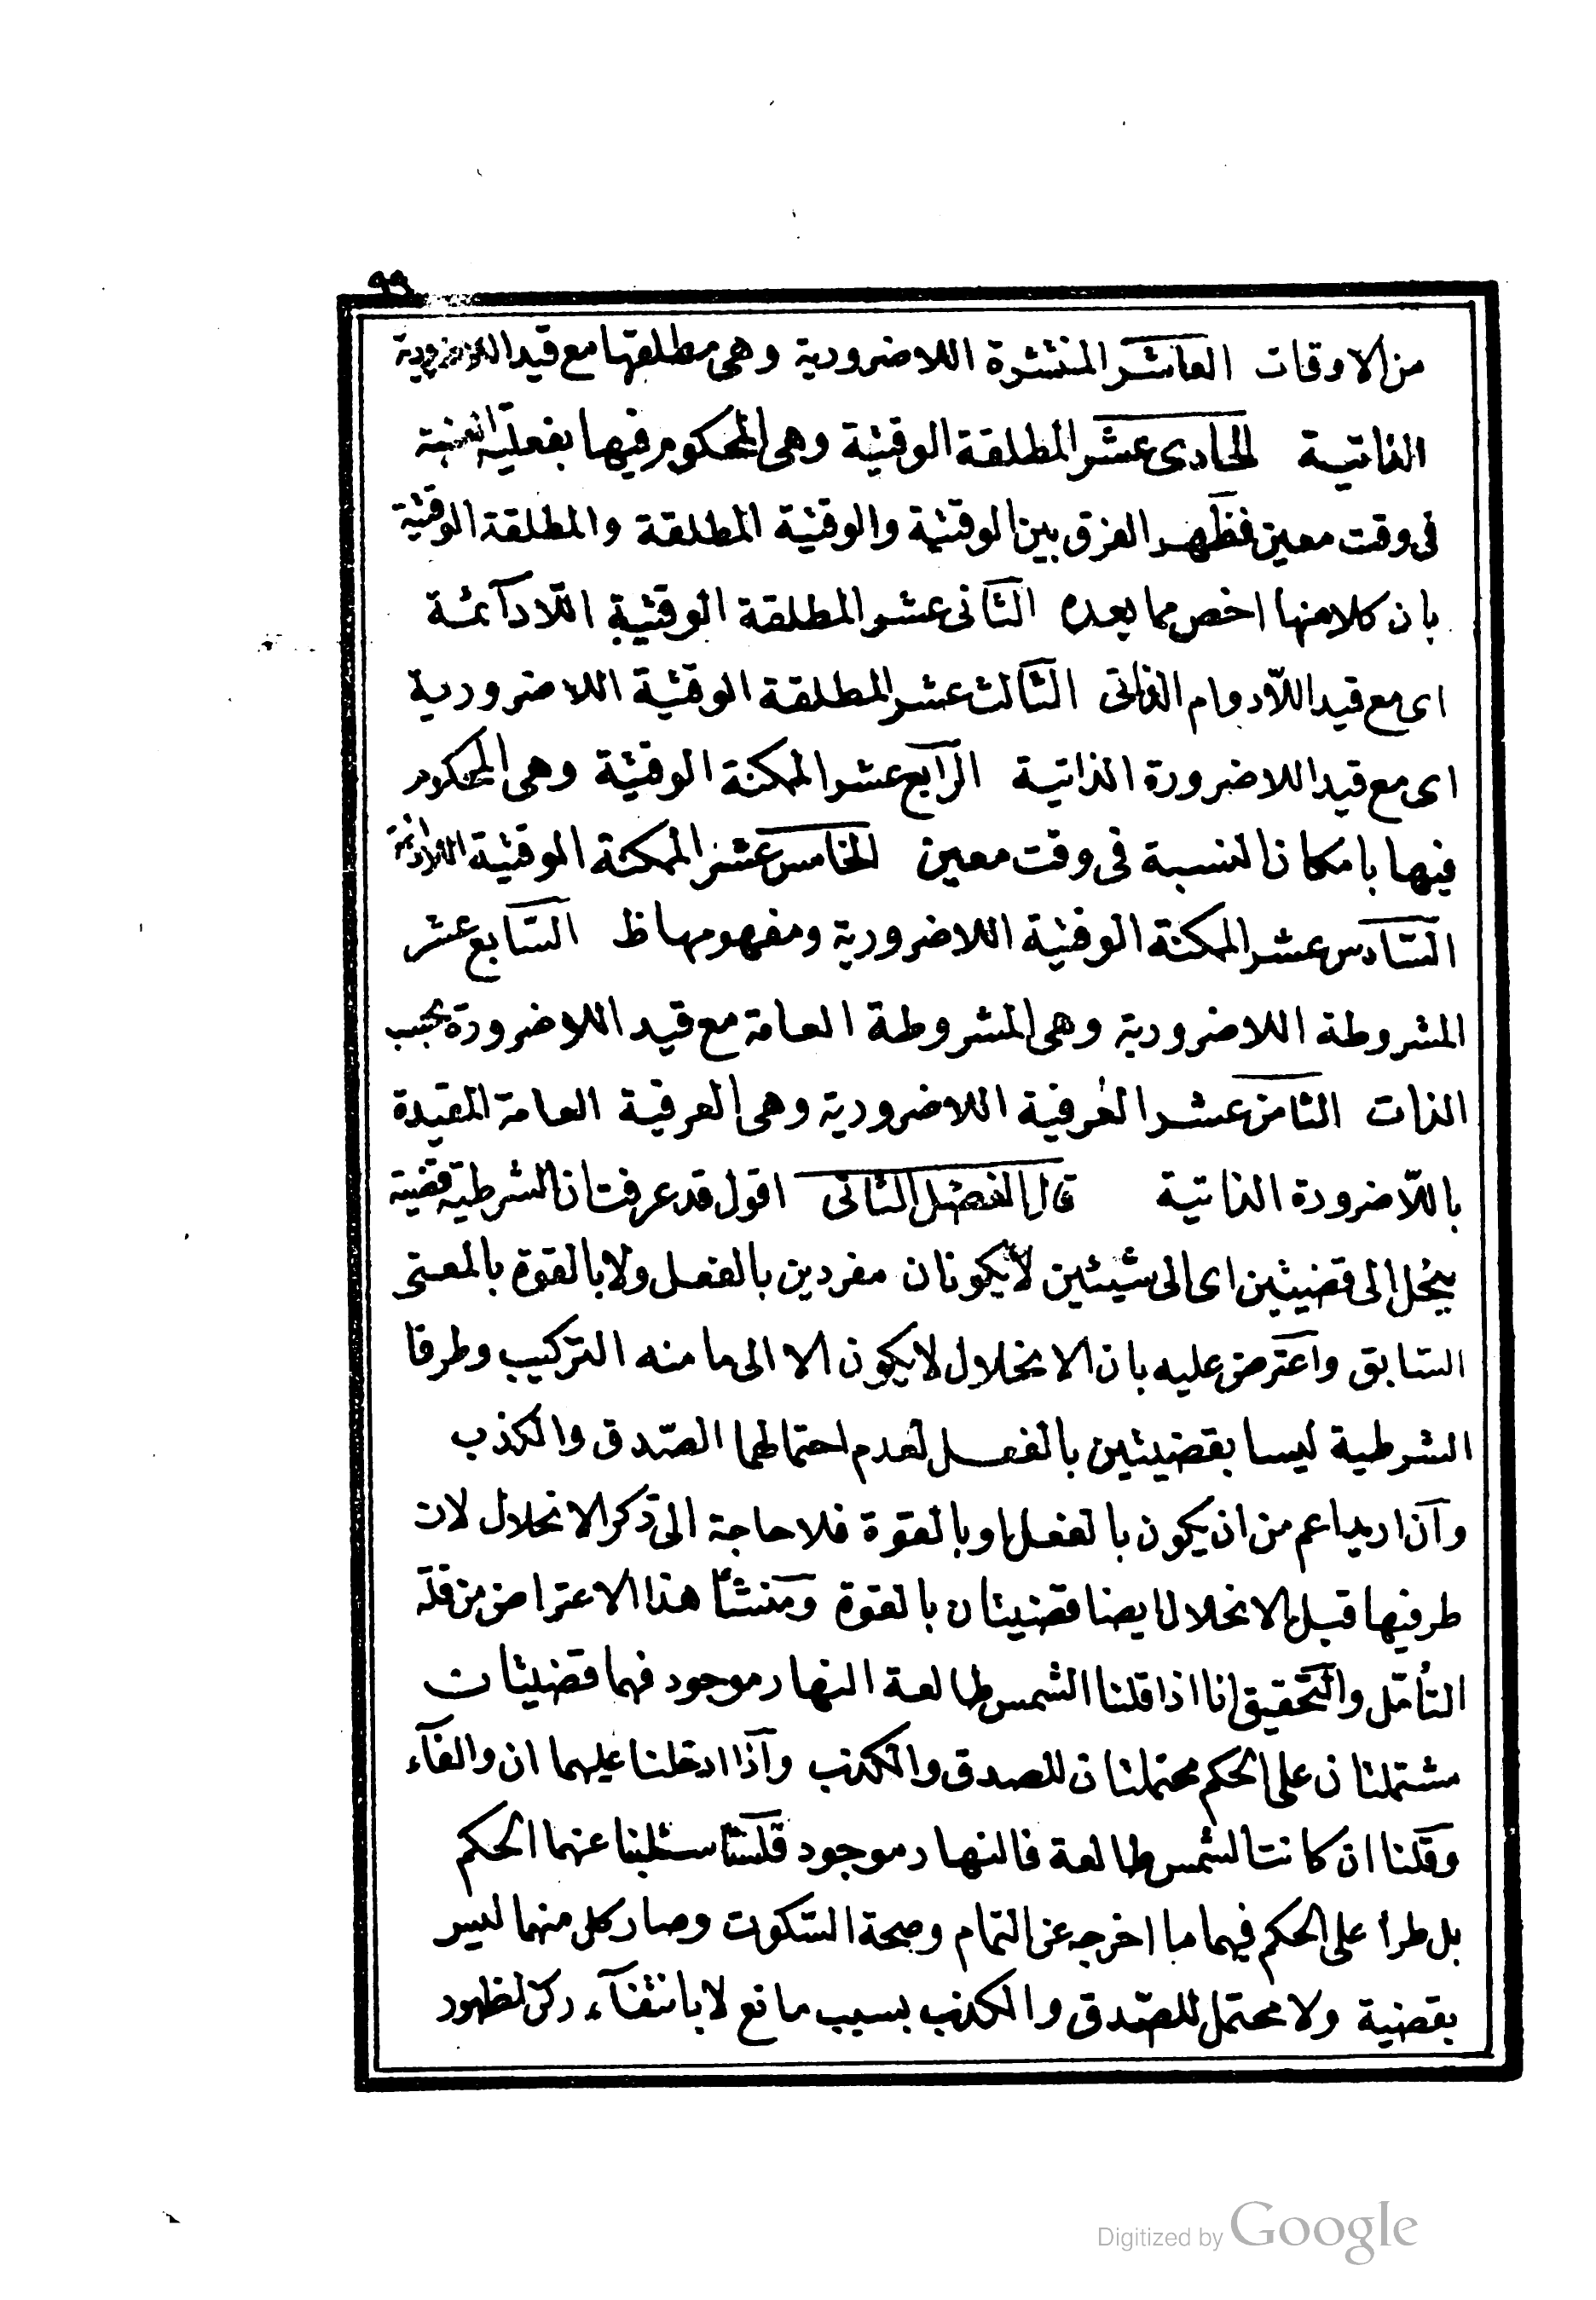 ٩٩
من الاوقات العاشر المنتشرة اللاضرورية وهى مطلقها مع قيد اللاضرورية
الذاتية الحادى عشر المطلقة الوقتية وهى المحكوم فيها بفعلية النسبة
فى وقت معين فظهر الفرق بين الوقتية والوقتية المطلقة والمطلقة الوقتية
بان كلا منها اخص مما بعده الثانى عشر المطلقة الوقتية اللادآئمة
اى مع قيد اللّادوام الذاتى الثالث عشر المطلقة الوقتية اللاضرورية
اى مع قيد اللاضرورة الذاتية الرابع عشر الممكنة الوقتية وهى المحكوم
فيها بامكان النسبة فى وقت معين الخامس عشر الممكنة الوقتية اللادائمة
السّادس عشر الممكنة الوقتية اللاضرورية ومفهومها ظ السّابع عشر
المشروطة اللاضرورية وهى المشروطة العامة مع قيد اللاضرورة بحسب
الذات الثامن عشر العرفية اللاضرورية وهى العرفية العامة المقيدة
باللّاضرورة الذاتية قال الفصل الثانى اقول قد عرفت ان الشرطية قضية
ينحل الى قضيتين اى الى شيئين لا يكونان مفردين بالفعل ولا بالقوة بالمعنى
السابق واعترض عليه بان الانحلال لا يكون الا الى ما منه التركيب وطرفا
الشرطية ليسا بقضيتين بالفعل لعدم احتمالهما الصّدق والكذب
وان اريد اعم من ان يكون بالفعل او بالقوة فلا حاجة الى ذكر الانحلال لان
طرفيها قبل الانحلال ايضا قضيتان بالقوة ومنشأ هذا الاعتراض من قلة
التأمّل والتحقيق انا اذا قلنا الشمس طالعة النهار موجود فهما قضيتان
مشتملتان على الحكم محتملتان للصدق والكذب واذا ادخلنا عليهما ان والفآء
وقلنا ان كانت الشمس طالعة فالنهار موجود فلسنا سلبنا عنهما الحكم
بل طرأ على الحكم فيهما ما اخرجه عن التمام وصحة السّكوت وصار كل منهما ليس
بقضية ولا محتمل للصّدق والكذب بسبب مانع لا بانتفآء ركن لظهور
Digitized by Google